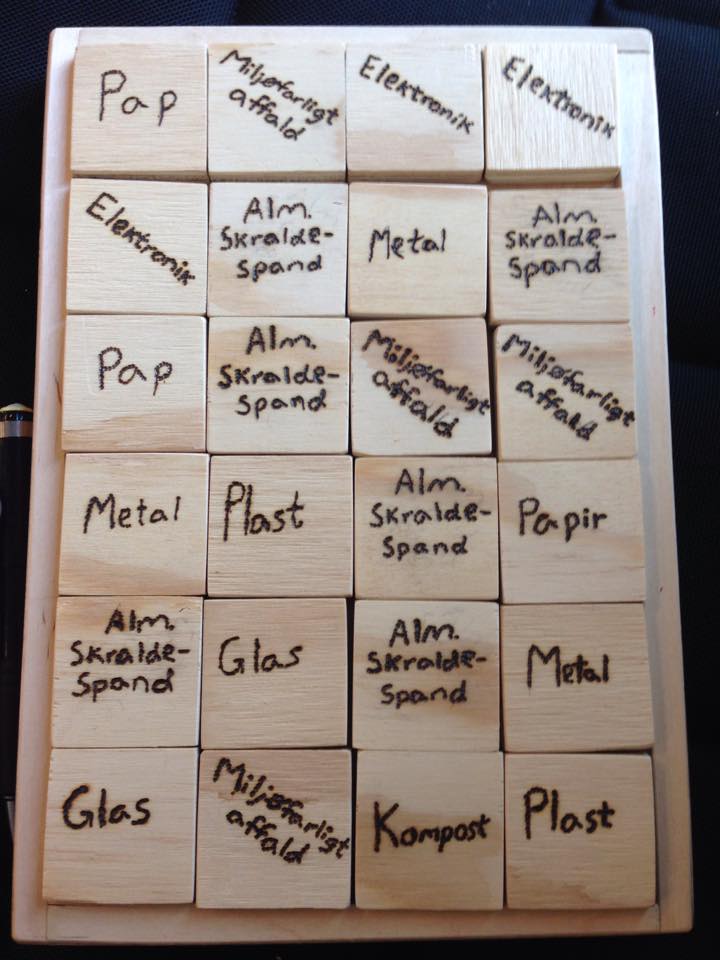 Pap
Miljøfarligt
affald
Elektronik
Elektronik
Elektronik
Alm.
Skralde-
spand
Metal
Alm.
Skralde-
spand
Pap
Alm.
Skralde-
spand
Miljøfarligt
affald
Miljøfarligt
affald
Metal
Plast
Alm.
Skralde-
spand
Papir
Alm.
Skralde-
spand
Glas
Alm.
Skralde-
spand
Metal
Glas
Miljøfarligt
affald
Kompost
Plast